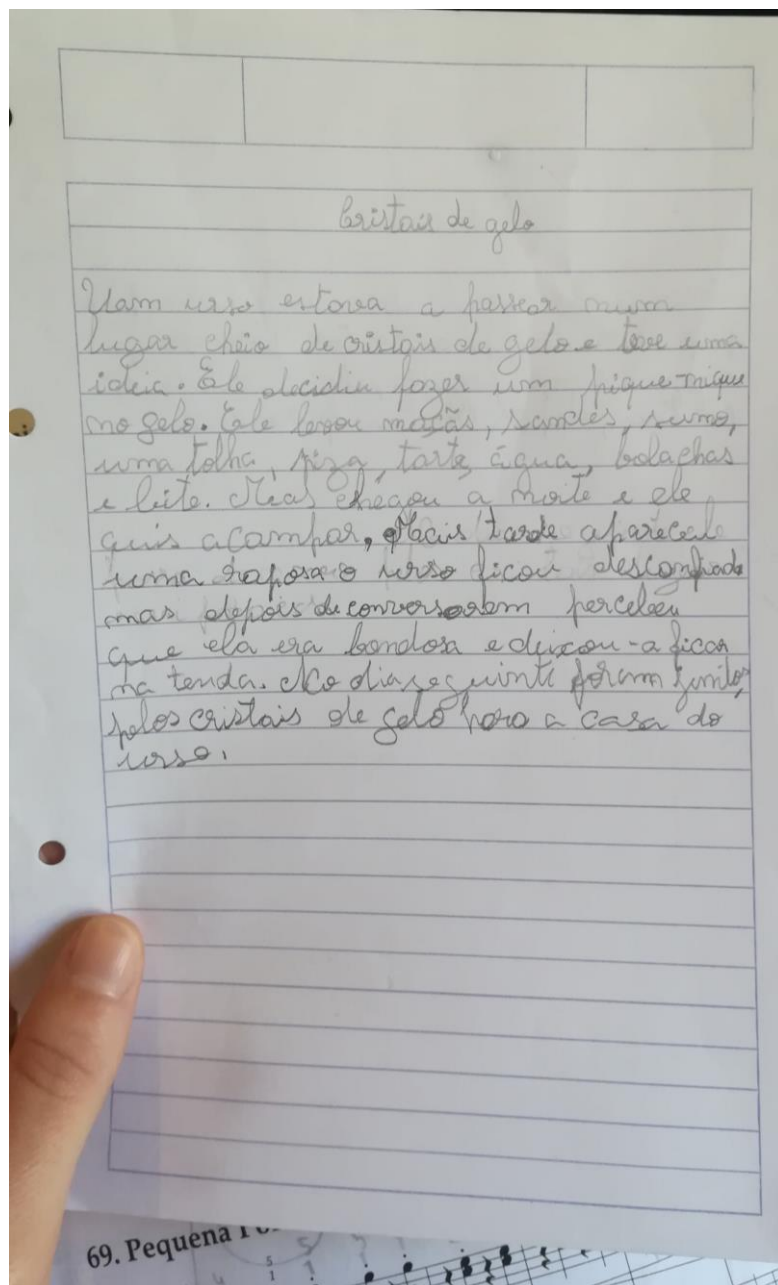 Cristais de gelo
Uam urso estava a passear num
lugar cheio de cristais de gelo e teve uma
ideia. Ele decidiu fazer um pique-nique
no gelo. Ele levou maçãs, sandes, sumo,
uma tolha, piza, tarte, água, bolachas
e leite. Mas chegou a noite e ele
quis acampar, Mais tarde apareceu
uma raposa o urso ficou desconfiado
mas depois de conversarem percebeu
que ela era bondosa e deixou-a ficar
na tenda. No dia seguinte foram juntos,
pelos cristais de gelo para a casa do
urso.
69. Pequena